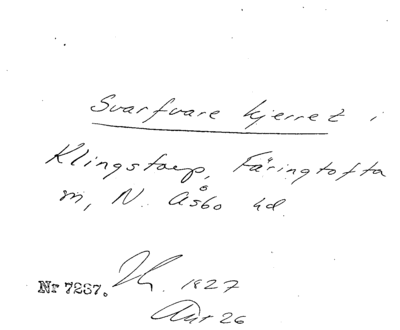 Svarfvare kjerret i
Klingstorp, Färingtofta
m, N. Åsbo hd.
Nr 7237. 1827
26